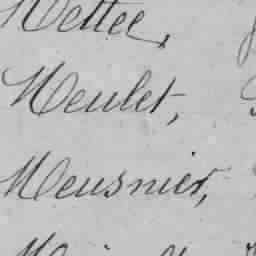 Mettee,
Meulet,
Meusnier,